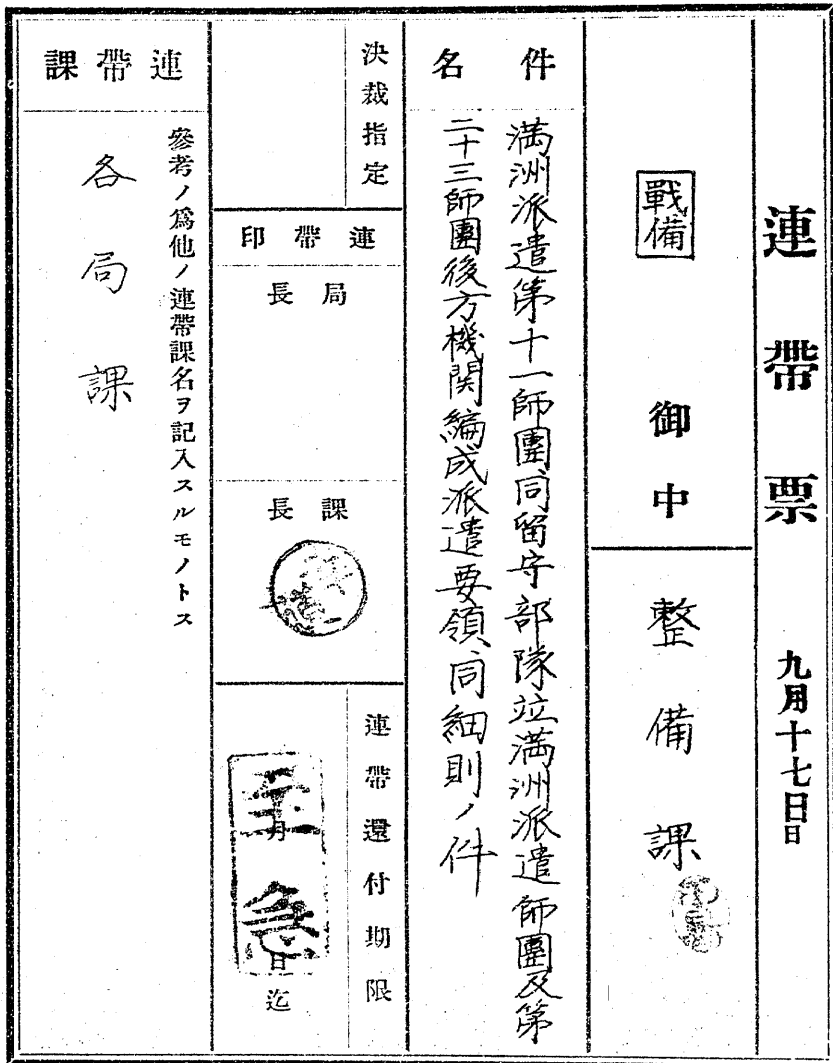 連帶票 九月十七日日
戰備 御中
整備課
件名
満洲派遣第十一師團同留守部隊竝満洲派遣師團及第
二十三師團後方機関編成派遣要領同細則ノ件
決裁指定
連帶印
局長
課長
連帶還付期限
至急
月 日迄
連帶課
參考ノ爲他ノ連帶課名ヲ記入スルモノトス
各局課